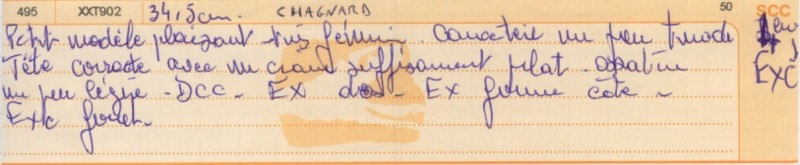 495 XXT902 34,5cm. CHAGNARD 50 SCC
Petit modèle plaisant très féminin. Caractère un peu timide
Tête correcte avec un crâne suffisamment plat. Ossature
un peu légère - DCC - EX dos - EX forme côte -
Exc fouet.
EXC